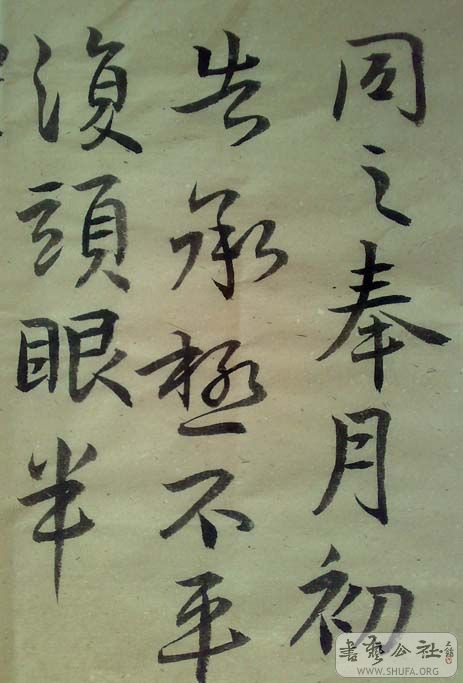 同之奉月初
告承極不平
復頭眼半
書藝公社
WWW.SHUFA.ORG